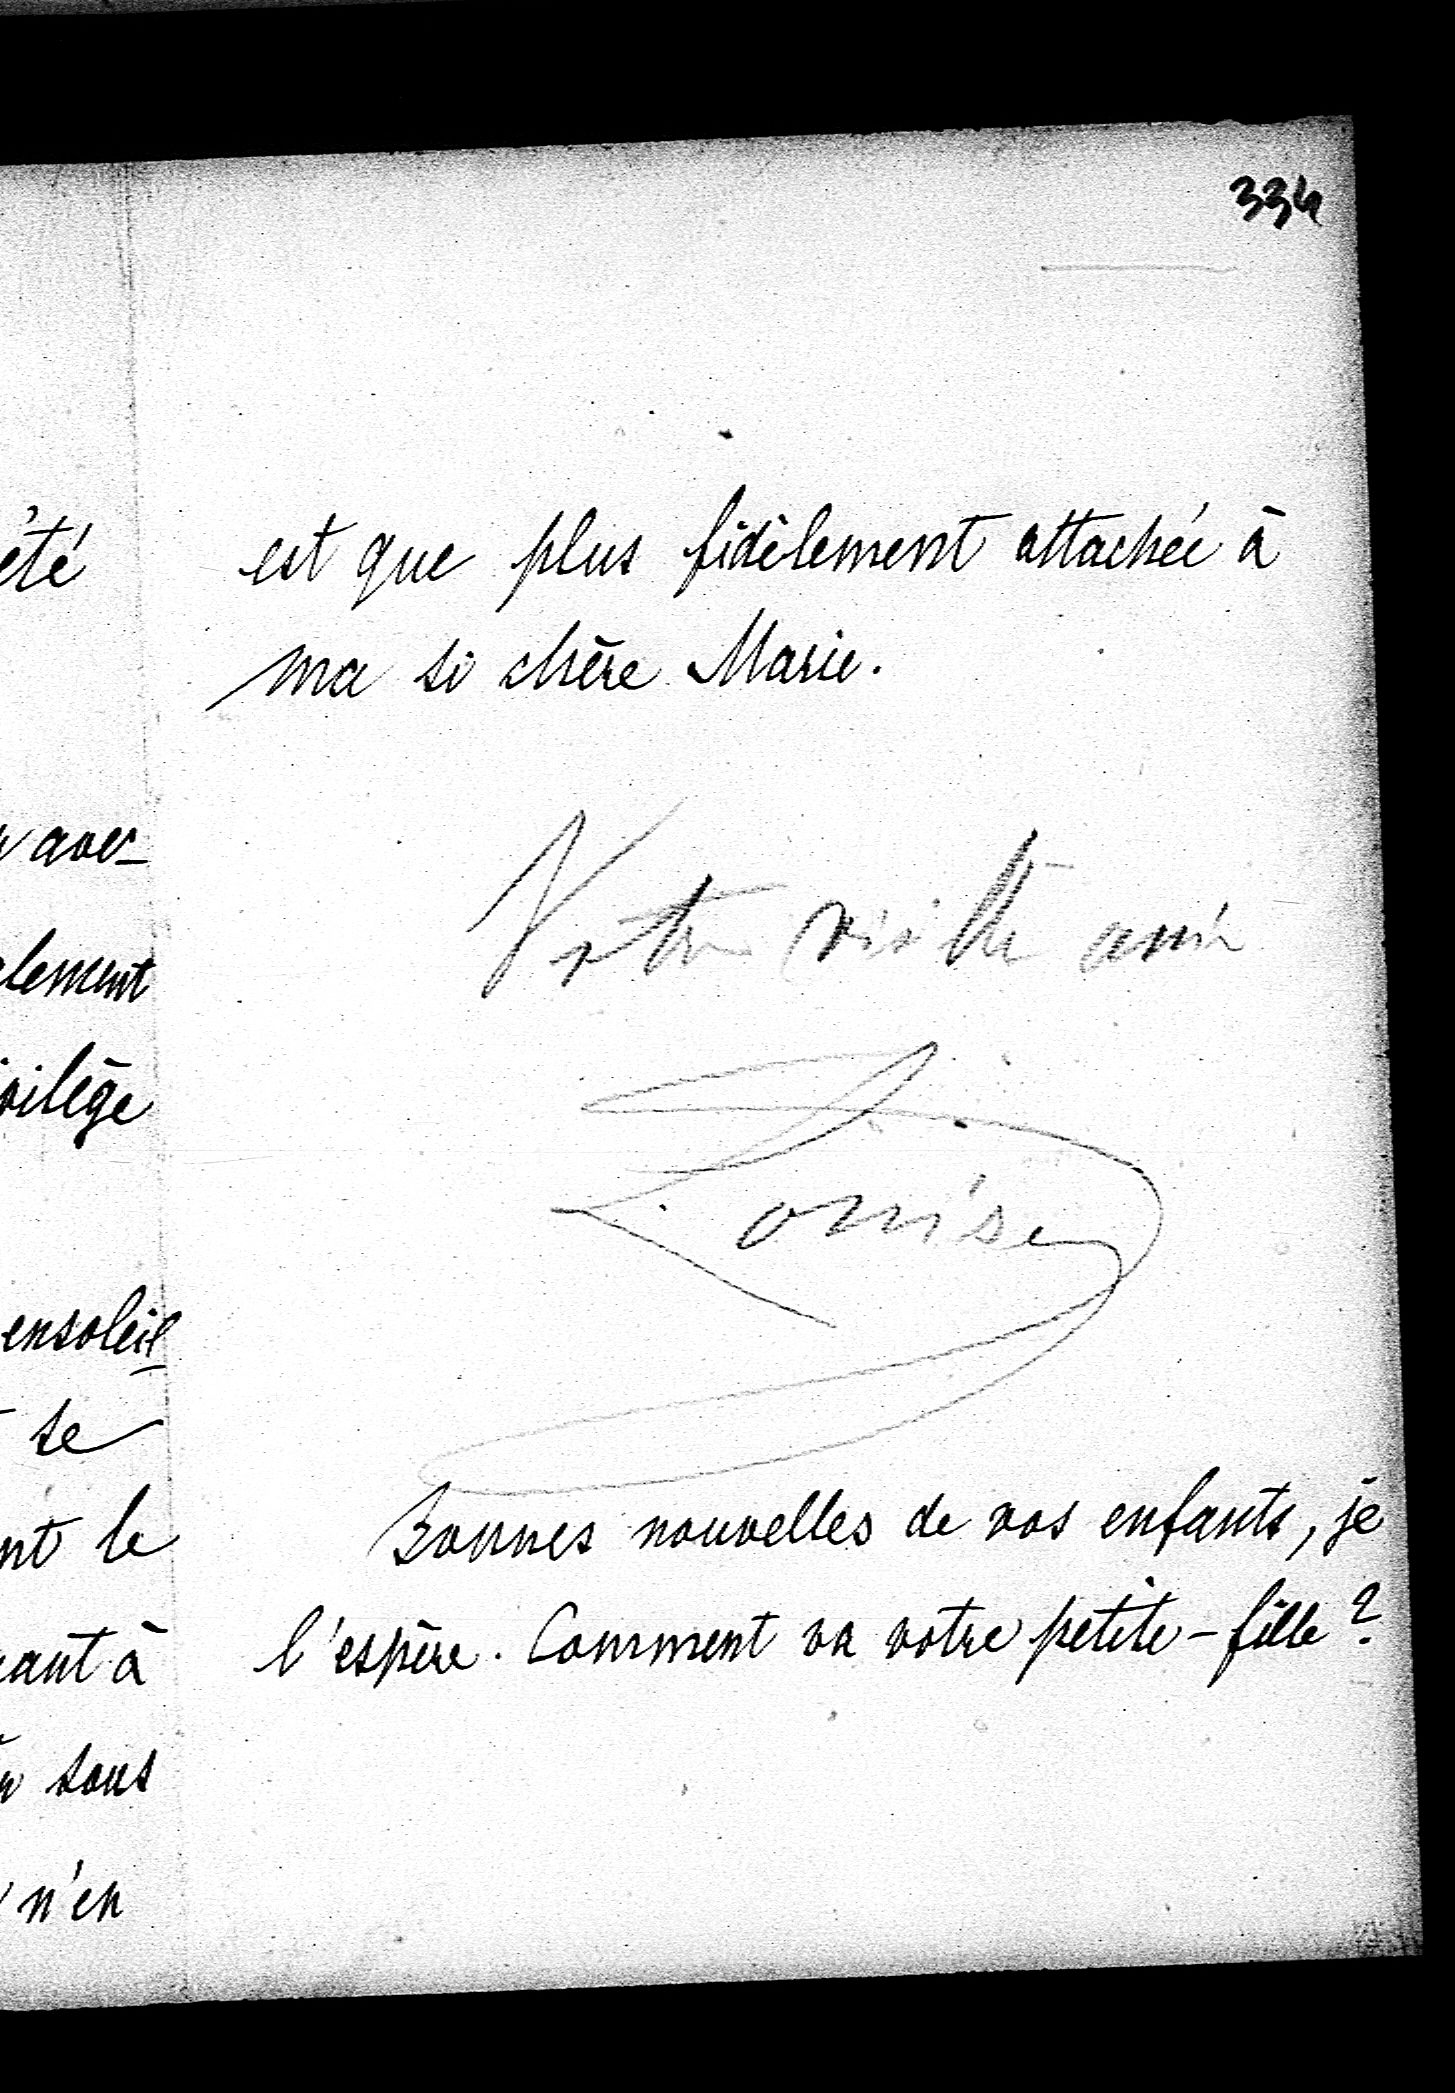 334
est que plus fidèlement attachée à
ma si chère Marie.
Votre vieille amie
Louise
Bonnes nouvelles de vos enfants, je
l'espère. Comment va votre petite-fille?
été
aver-
element
vilège
ensoleil
se
nt le
ant à
sous
n'en